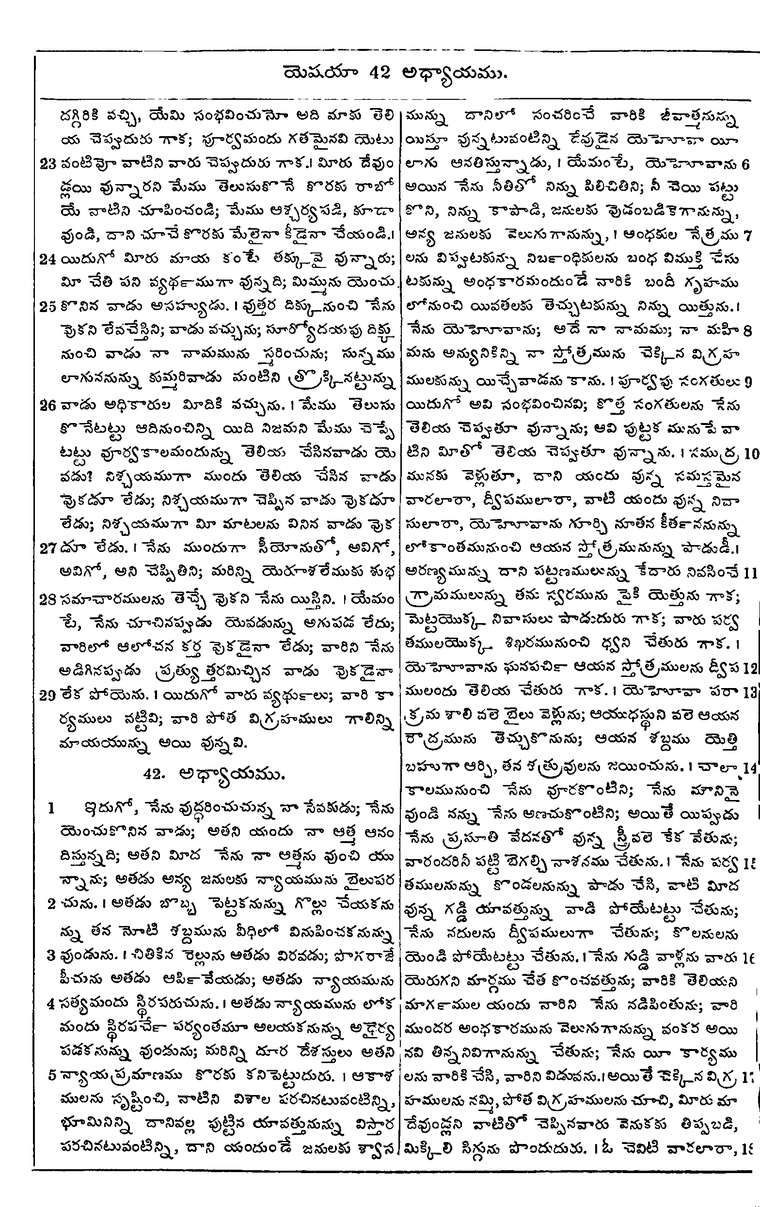 యెషయా 42 అధ్యాయము.
దగ్గిరికి వచ్చి, యేమి సంభవించునో అది మాకు తెలి
య చెప్పుదురు గాక; పూర్వమందు గతమైనవి యెటు
23 వంటివో వాటిని వారు చెప్పుదురు గాక. । మీరు దేవుం
డ్లయి వున్నారని మేము తెలుసుకొనే కొరకు రాబో
యే వాటిని చూపించండి; మేము ఆశ్చర్యపడి, కూడా
వుండి, దాని చూచే కొరకు మేలైనా కీడైనా చేయండి. ।
24 యిదుగో మీరు మాయ కంటే తక్కువై వున్నారు;
మీ చేతి పని వ్యర్థముగా వున్నది; మిమ్మును యెంచు
25 కొనిన వాడు అసహ్యుడు. । వుత్తర దిక్కునుంచి నేను
వొకని లేవచేస్తిని; వాడు వచ్చును; సూర్యోదయపు దిక్కు
నుంచి వాడు నా నామమును స్మరించును; సున్నము
లాగుననున్ను కుమ్మరివాడు మంటిని త్రొక్కినట్టున్ను
26 వాడు అధికారుల మీదికి వచ్చును. । మేము తెలుసు
కొనేటట్టు ఆదినుంచిన్ని యిది నిజమని మేము చెప్పే
టట్టు పూర్వకాలమందున్ను తెలియ చేసినవాడు యె
వడు? నిశ్చయముగా ముందు తెలియ చేసిన వాడు
వొకడూ లేడు; నిశ్చయముగా చెప్పిన వాడు వొకడూ
లేడు; నిశ్చయముగా మీ మాటలను వినిన వాడు వొక
27 డూ లేడు. । నేను ముందుగా సీయోనుతో, అవిగో,
అవిగో, అని చెప్పితిని; మరిన్ని యెరూశలేముకు శుభ
28 సమాచారములను తెచ్చే వొకని నేను యిస్తిని. । యేమం
టే, నేను చూచినప్పుడు యెవడున్ను అగుపడ లేదు;
వారిలో ఆలోచన కర్త వొకడైనా లేడు; వారిని నేను
అడిగినప్పుడు ప్రత్యుత్తరమిచ్చిన వాడు వొకడైనా
29 లేక పోయెను. । యిదుగో వారు వ్యర్థులు; వారి కా
ర్యములు వట్టివి; వారి పోత విగ్రహములు గాలిన్ని
మాయయున్ను అయి వున్నవి.
42. అధ్యాయము.
1 ఇదుగో, నేను వుద్ధరించుచున్న నా సేవకుడు; నేను
యెంచుకొనిన వాడు; అతని యందు నా ఆత్మ ఆనం
దిస్తున్నది; అతని మీద నేను నా ఆత్మను వుంచి యు
న్నాను; అతడు అన్య జనులకు న్యాయమును బైలుపర
2 చును. । అతడు బొబ్బ పెట్టకనున్ను గొల్లు చేయకను
న్ను తన నోటి శబ్దమును వీధిలో వినుపించకనున్ను
3 వుండును. । చితికిన రెల్లును ఆతడు విరవడు; పొగరాజే
పీచును అతడు ఆర్పివేయడు; అతడు న్యాయమును
4 సత్యమందు స్థిరపరుచును. । అతడు న్యాయమును లోక
మందు స్థిరపచే పర్యంతమూ ఆలయకనున్ను అధైర్య
పడకనున్ను వుండును; మరిన్ని దూర దేశస్తులు అతని
5 న్యాయప్రమాణము కొరకు కనిపెట్టుదురు. । ఆకాశ
ములను సృష్టించి, వాటిని విశాల పరచినటువంటిన్ని,
భూమినిన్ని దానివల్ల పుట్టిన యావత్తునున్ను విస్తార
పరచినటువంటిన్ని, దాని యందుండే జనులకు శ్వాస
మున్ను దానిలో సంచరించే వారికి జీవాత్మనున్ను
యిస్తూ వున్నటువంటిన్ని దేవుడైన యెహోవా యీ
లాగు ఆనతిస్తున్నాడు, । యేమంటే, యెహోవాను 6
అయిన నేను నీతితో నిన్ను పిలిచితిని; నీ చెయి పట్టు
కొని, నిన్ను కాపాడి, జనులకు వుడంబడికెగానున్ను,
అన్య జనులకు వెలుగుగానున్ను, । అంధకుల నేత్రము 7
లను విప్పుటకున్ను నిబంధికులను బంధ విముక్తి చేసు
టకున్ను అంధకారమందుండే వారికి బందీ గృహము
లోనుంచి యివతలకు తెచ్చుటకున్ను నిన్ను యిత్తును. ।
నేను యెహోవాను; అదే నా నామము; నా మహి 8
మను అన్యునికిన్ని నా స్తోత్రమును చెక్కిన విగ్రహ
ములకున్ను యిచ్చేవాడను కాను. । పూర్వపు సంగతులు 9
యిదుగో అవి సంభవించినవి; కొత్త సంగతులను నేను
తెలియ చెప్పుతూ వున్నాను; అవి పుట్టక మునుపే వా
టిని మీతో తెలియ చెప్పుతూ వున్నాను. । సముద్ర 10
మునకు వెళ్లుతూ, దాని యందు వున్న సమస్తమైన
వారలారా, ద్వీపములారా, వాటి యందు వున్న నివా
సులారా, యెహోవాను గూర్చి నూతన కీర్తననున్ను
లోకాంతమునుంచి ఆయన స్తోత్రమునున్ను పాడుడీ. ।
అరణ్యమున్ను దాని పట్టణములున్ను కేదారు నివసించే 11
గ్రామములున్ను తమ స్వరమును పైకి యెత్తును గాక;
మెట్టయొక్క నివాసులు పాడుదురు గాక; వారు పర్వ
తములయొక్క శిఖరమునుంచి ధ్వని చేతురు గాక. ।
యెహోవాను ఘనపర్చి ఆయన స్తోత్రములను ద్వీప 12
ములందు తెలియ చేతురు గాక. । యెహోవా పరా 13
క్రమ శాలి వలె బైలు వెళ్లును; ఆయుధస్థుని వలె ఆయన
రౌద్రమును తెచ్చుకొనును; ఆయన శబ్దము యెత్తి
బహుగా ఆర్చి, తన శత్రువులను జయించును. । చాలా 14
కాలమునుంచి నేను వూరకొంటిని; నేను మౌనినై
వుండి నన్ను నేను అణచుకొంటిని; అయితే యిప్పుడు
నేను ప్రసూతి వేదనతో వున్న స్త్రీ వలె కేక వేతును;
వారందరినీ పట్టి బెగల్చి నాశనము చేతును. । నేను పర్వ 15
తములనున్ను కొండలనున్ను పాడు చేసి, వాటి మీద
వున్న గడ్డి యావత్తున్ను వాడి పోయేటట్టు చేతును;
నేను నదులను ద్వీపములుగా చేతును; కొలనులను
యెండి పోయేటట్టు చేతును. । నేను గుడ్డి వాళ్లను వారు 16
యెరుగని మార్గము చేత కొంచవత్తును; వారికి తెలియని
మార్గముల యందు వారిని నేను నడిపింతును; వారి
ముందర అంధకారమును వెలుగుగానున్ను వంకర అయి
నవి తిన్ననివిగానున్ను చేతును; నేను యీ కార్యము
లను వారికి చేసి, వారిని విడువను. । అయితే చెక్కిన విగ్ర 17
హములను నమ్మి, పోత విగ్రహములను చూచి, మీరు మా
దేవుండ్లని వాటితో చెప్పినవారు వెనుకకు తిప్పబడి,
మిక్కిలి సిగ్గును పొందుదురు. । ఓ చెవిటి వారలారా, 18